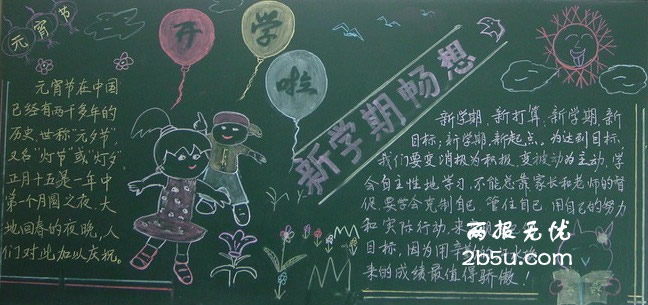 元宵节
元宵节在中国
已经有两千多年的
历史，世称“元夕节”，
又名“灯节”或“灯夕”
正月十五是一年中
第一个月圆之夜，大
地回春的夜晚，人
们对此加以庆祝。
开学啦
新学期畅想
新学期，新打算，新学期，新
目标，新学期，新起点。为达到目标，
我们要变消极为积极，变被动为主动，学
会自主性地学习，不能总靠家长和老师的督
促，要学会克制自己，管住自己，用自己的努力
和实际行动，来
目标，因为用辛勤的
来的成绩最值得骄傲！
画报无忧
2b5u.com